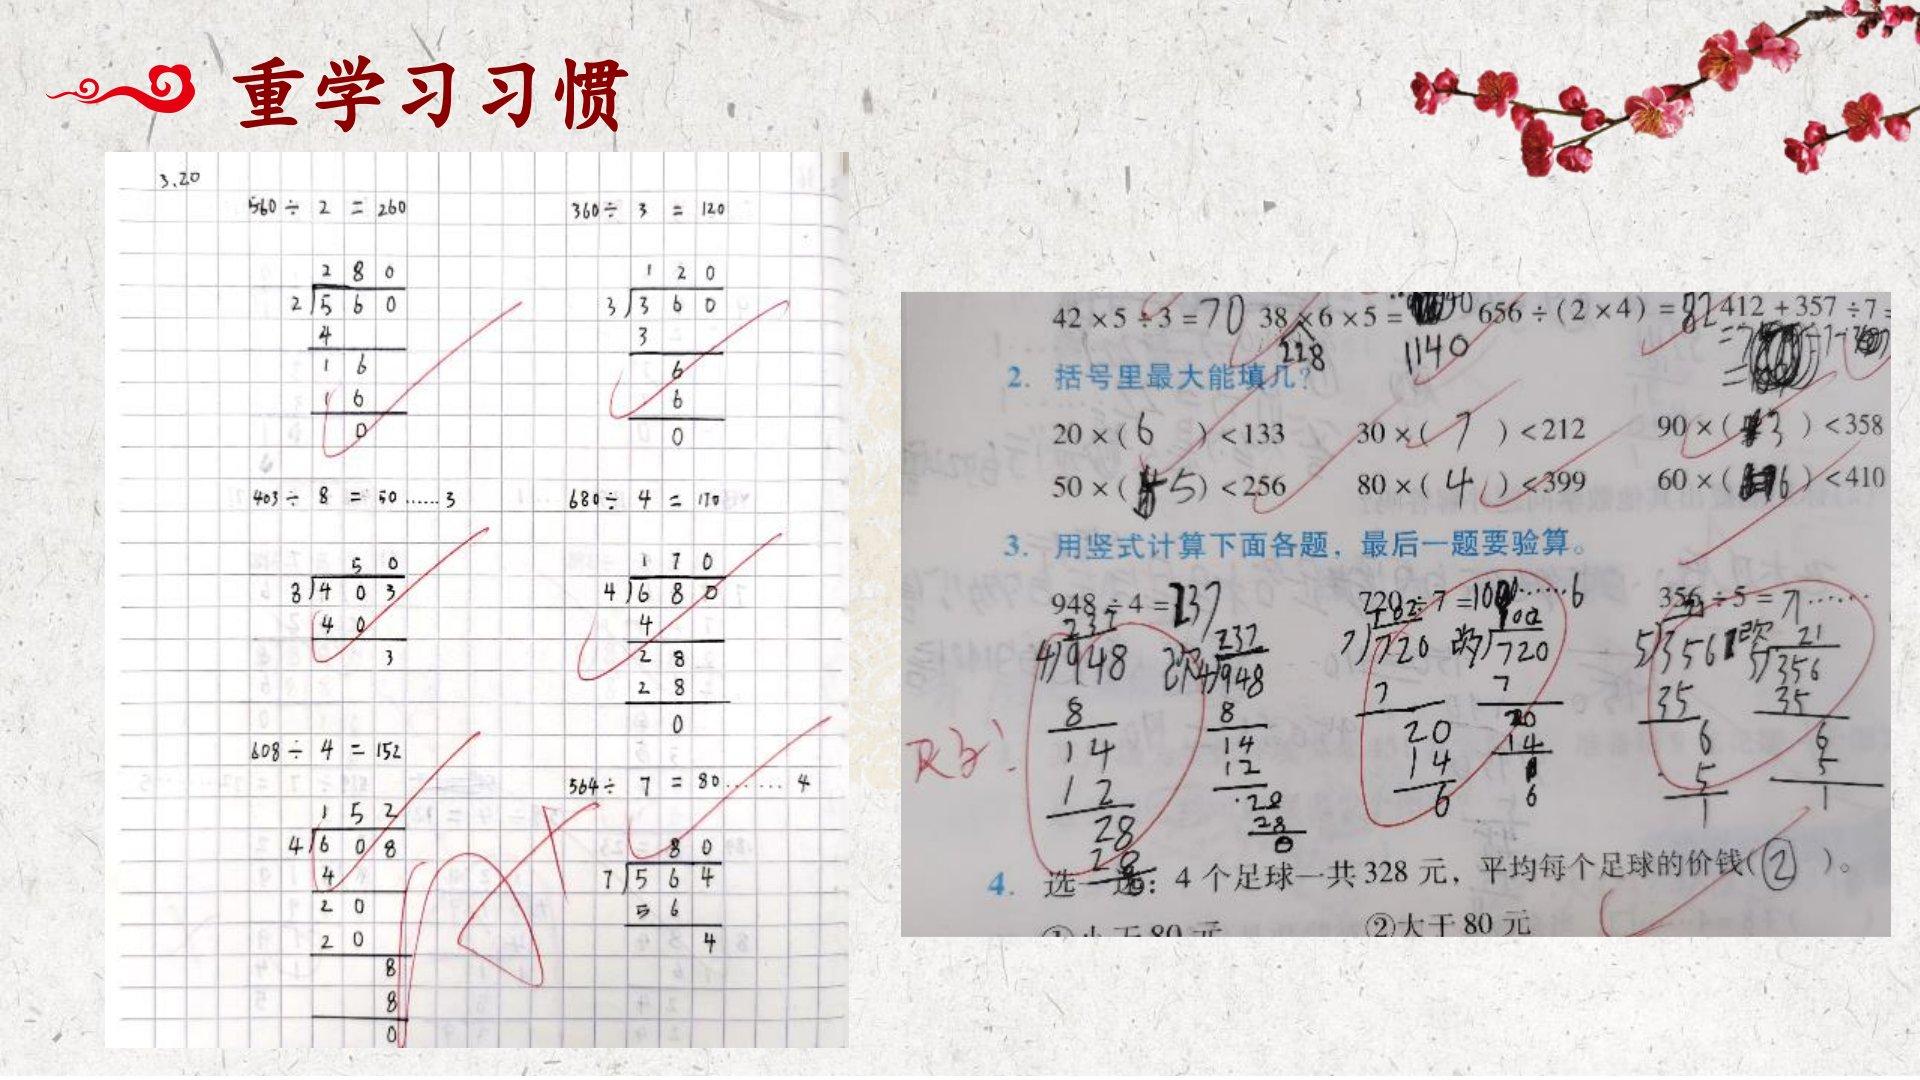 重学习习惯
3.20
560 ÷ 2 = 260
360 ÷ 3 = 120
2 8 0
2 5 6 0
4
1 6
1 6
0
1 2 0
3 3 6 0
3
6
6
0
403 ÷ 8 = 50 …… 3
680 ÷ 4 = 170
5 0
8 4 0 3
4 0
3
1 7 0
4 6 8 0
4
2 8
2 8
0
608 ÷ 4 = 152
564 ÷ 7 = 80 …… 4
1 5 2
4 6 0 8
4
2 0
2 0
8
8
0
8 0
7 5 6 4
5 6
4
42 × 5 ÷ 3 = 70 38 × 6 × 5 = 656 ÷ (2 × 4) = 82 412 + 357 ÷ 7 =
228
1140
2. 括号里最大能填几?
20 × ( 6 ) < 133 30 × ( 7 ) < 212 90 × ( 3 ) < 358
50 × ( 5 ) < 256 80 × ( 4 ) < 399 60 × ( 6 ) < 410
3. 用竖式计算下面各题，最后一题要验算。
948 ÷ 4 = 237 720 ÷ 7 = …… 6 356 ÷ 5 = 7 ……
237
4 948
8
14
12
28
28
改
237
4 948
8
14
12
28
28
0
102
7 720
7
20
14
6
改
102
7 720
7
20
14
6
5 356
35
6
5
1
改
21
5 356
35
6
5
1
4. 选一选：4 个足球一共 328 元，平均每个足球的价钱( ② )。
①小于 80 元 ②大于 80 元